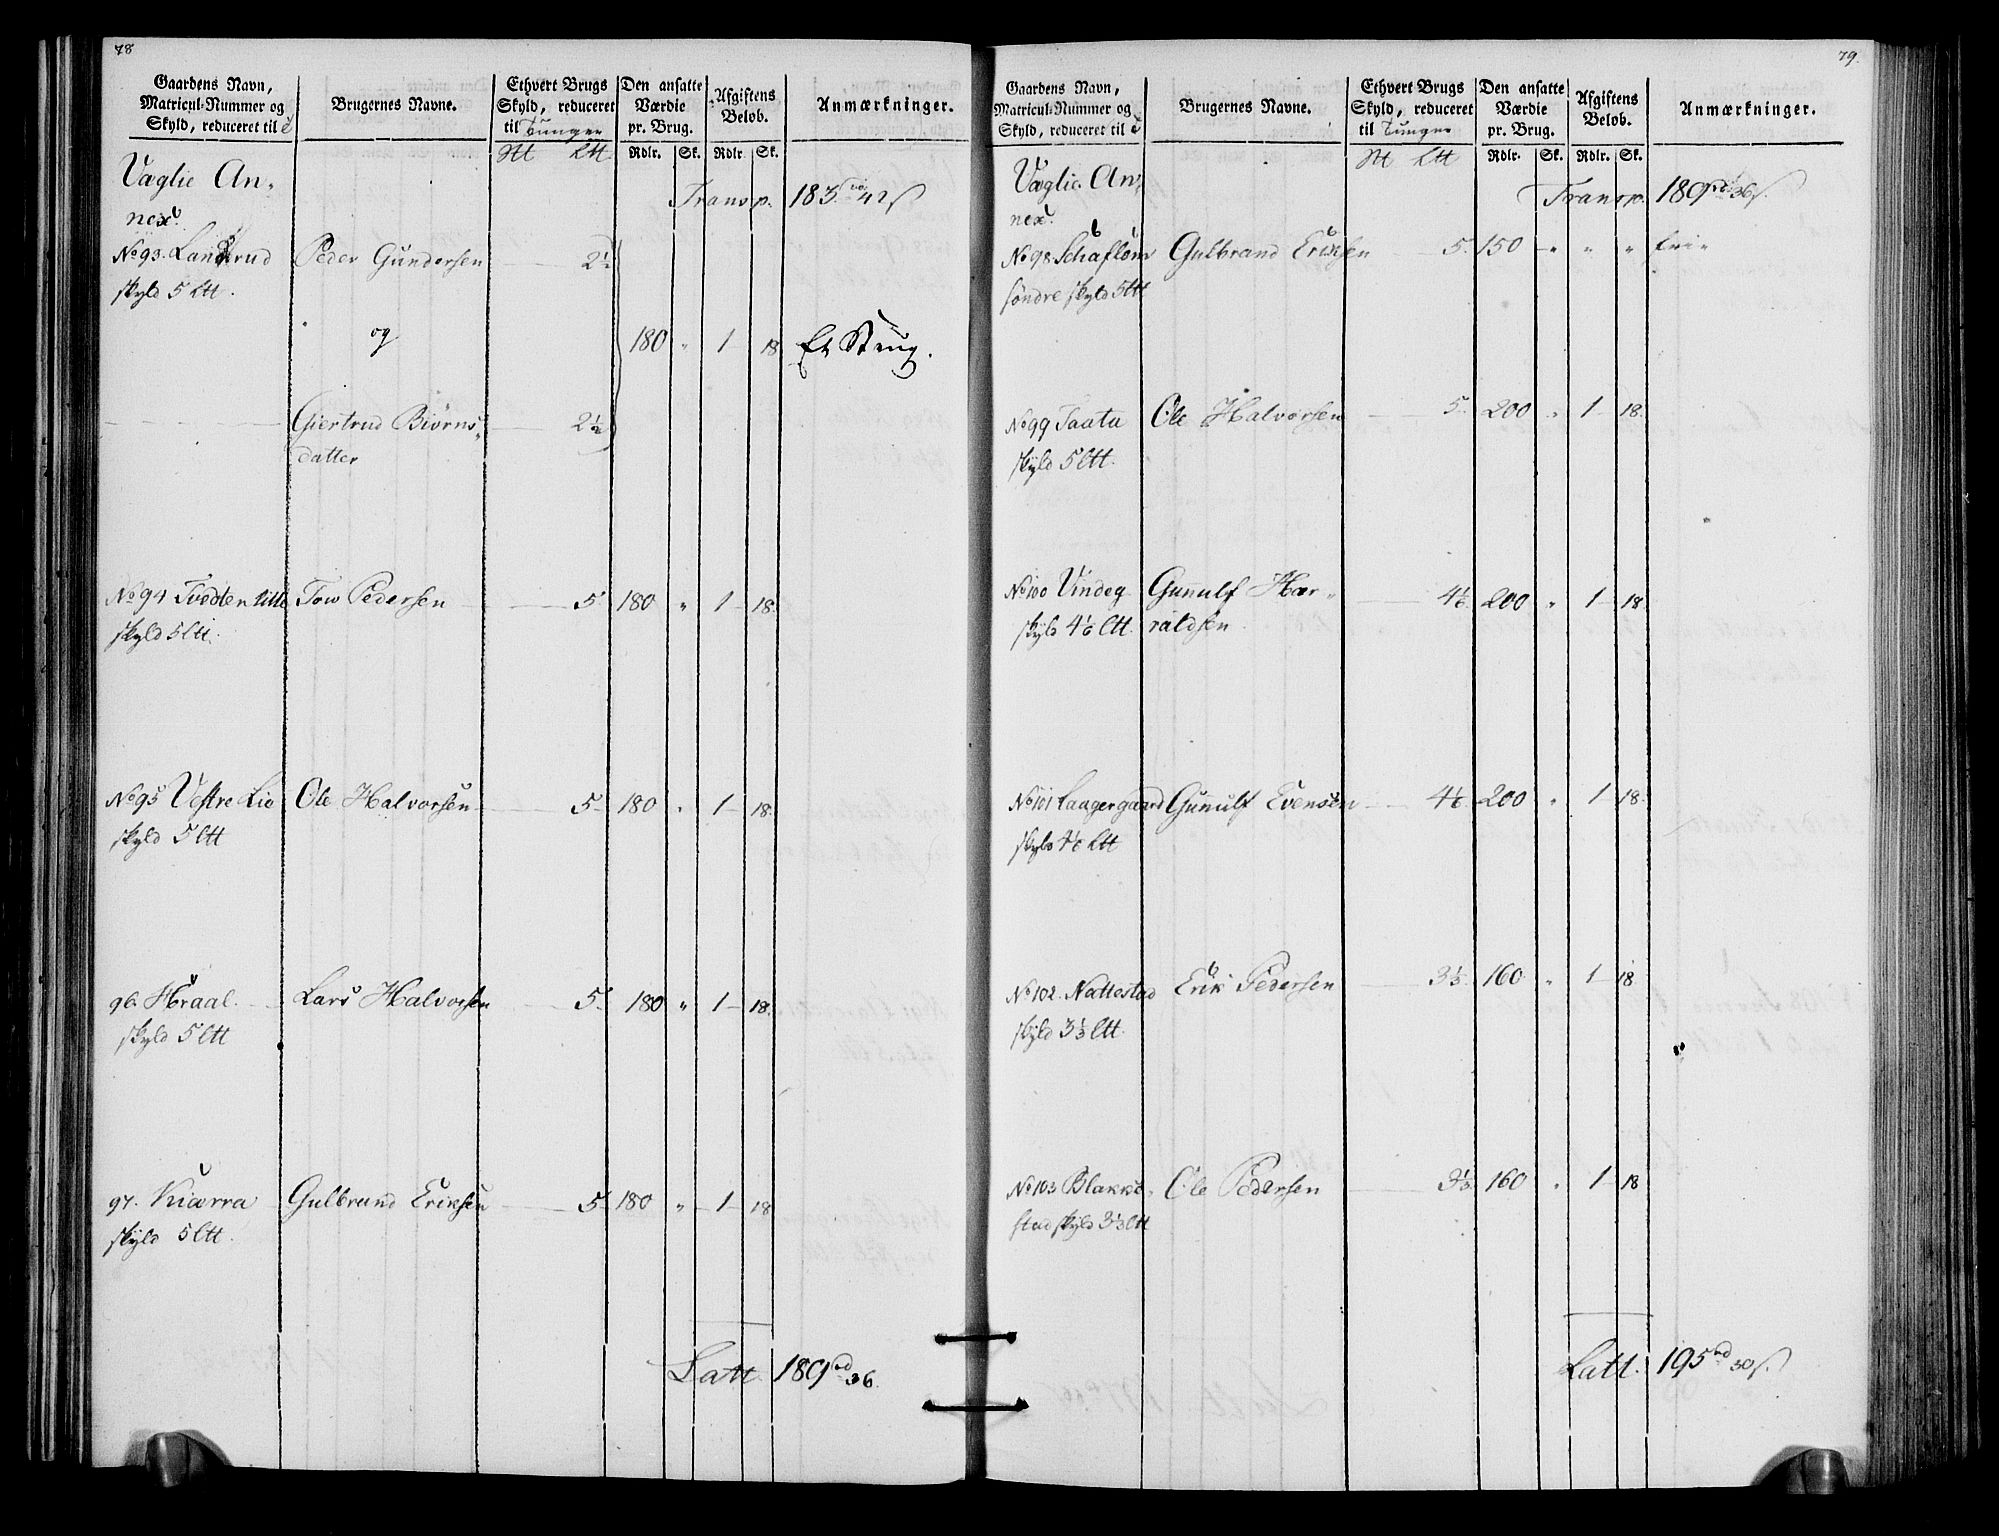 78
Gaardens Navn, Matricul-Nummer og Skyld, reduceret til
Brugernes Navne.
Ethvert Brugs Skyld, reduceret til Tunger
Den ansatte Værdie pr. Brug.
Afgiftens Beløb.
Anmærkninger.
Rdlr. Sk. Rdlr. Sk.
Væglie An-
nex.
Transp. 183 42 s
No 93. Landerud Peder Gundersen 2½
skyld 5 Ltt.
og 180 " 1 18 Et Brug.
Giertrud Biörns- 2½
datter
No 94 Tvedten litle Tow Pedersen 5 180 " 1 18
skyld 5 Ltt.
No 95 Vestre Lie Ole Halvorsen 5 180 " 1 18.
skyld 5 Ltt
96. Horaal Lars Halvorsen 5 180 " 1 18.
skyld 5 Ltt
97. Kiærra Gulbrand Eriksen 5 180 " 1 18
skyld 5 Ltt.
Latt. 189 rd 36.
79.
Gaardens Navn, Matricul-Nummer og Skyld, reduceret til
Brugernes Navne.
Ethvert Brugs Skyld, reduceret til Tunger
Den ansatte Værdie pr. Brug.
Afgiftens Beløb.
Anmærkninger.
Rdlr. Sk. Rdlr. Sk.
Væglie An-
nex.
Transp. 189 rd 36 s.
No 98 Schafløm Gulbrand Eriksen 5. 150 " " " fri
söndre skyld 5 Ltt
No 99 Taata Ole Halvorsen 5 200 " 1 18.
skyld 5 Ltt.
No 100 Vindeg Gunulf Har- 4⅙ 200 " 1 18
skyld 4⅙ Ltt. raldsen
No 101 Laagergaard Gunulf Evensen 4⅙ 200 " 1 18.
skyld 4⅙ Ltt
No 102. Nattestad Erik Pedersen 3⅓ 160 " 1 18
skyld 3⅓ Ltt.
No 103 Blakke- Ole Pedersen 3⅓ 160 " 1 18
stad skyld 3⅓ Ltt
Latt. 195 rd 30 s.